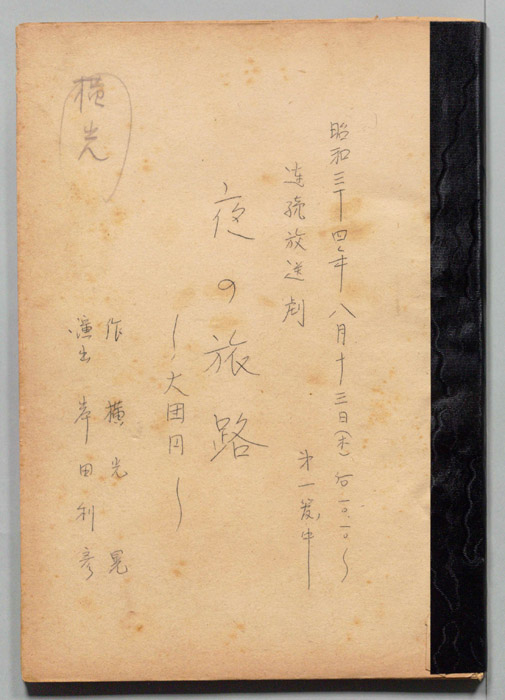 昭和三十四年八月十三日(木)
連続放送劇
夜の旅路
~大団円~
作 横光 晃
演出 岸田利彦
横光